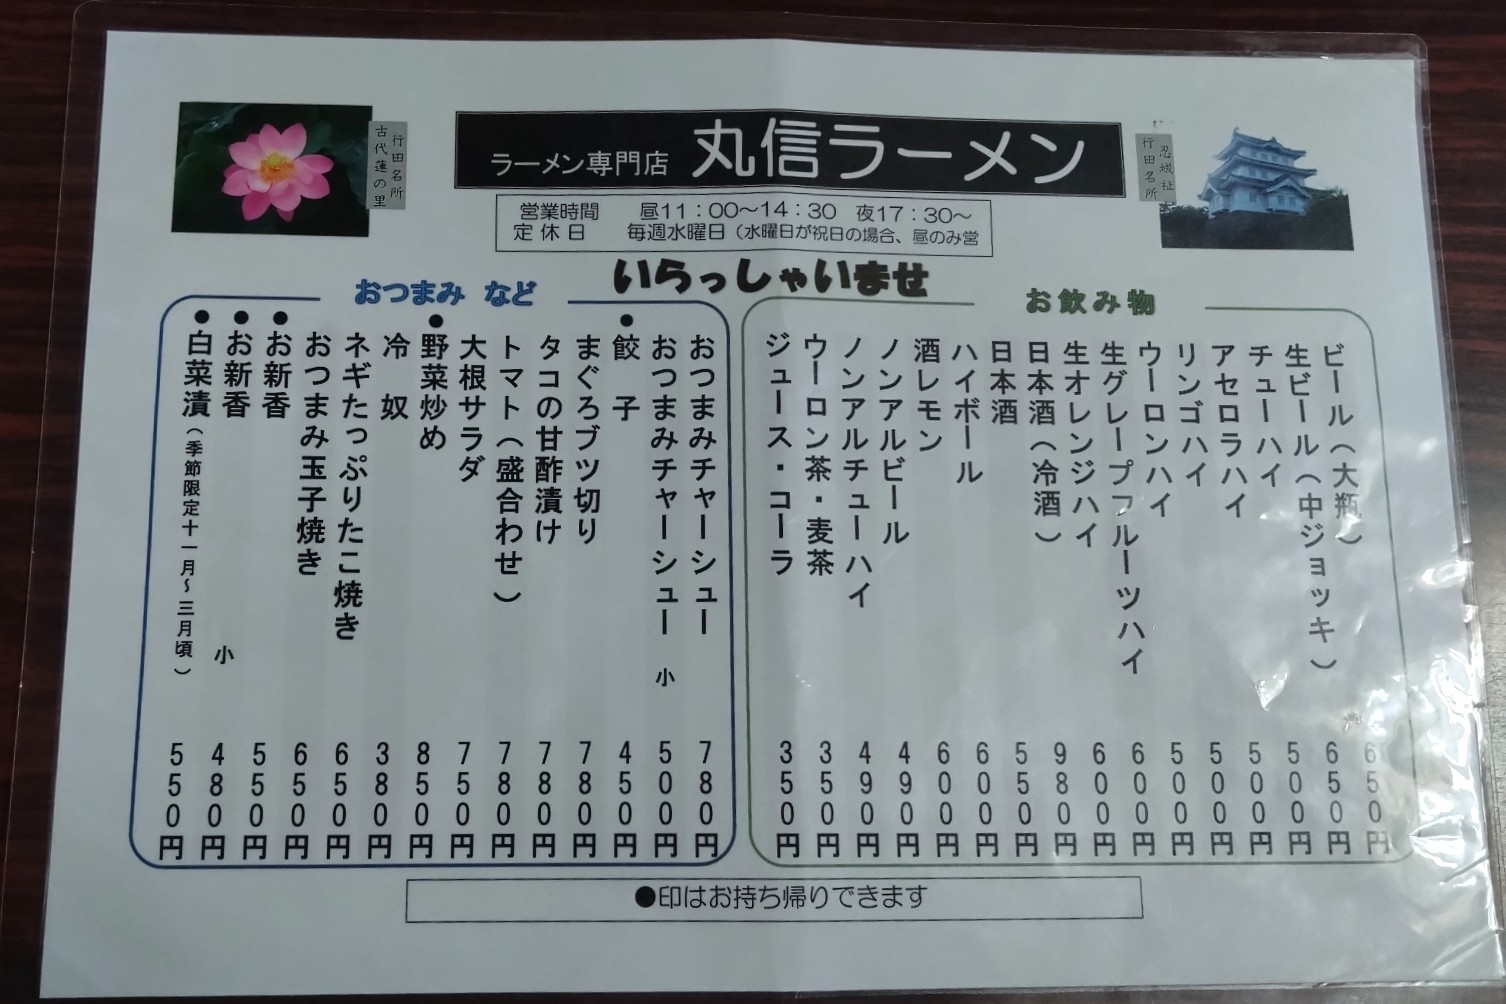 行田名所
古代蓮の里
ラーメン専門店 丸信ラーメン
忍城址
行田名所
営業時間 昼11：00～14：30 夜17：30～
定休日 毎週水曜日（水曜日が祝日の場合、昼のみ営
いらっしゃいませ
お飲み物
ビール（大瓶） 650円
生ビール（中ジョッキ） 650円
チューハイ 500円
アセロラハイ 500円
リンゴハイ 500円
ウーロンハイ 500円
生グレープフルーツハイ 600円
生オレンジハイ 600円
日本酒（冷酒） 980円
日本酒 550円
ハイボール 600円
酒レモン 600円
ノンアルビール 490円
ノンアルチューハイ 490円
ウーロン茶・麦茶 350円
ジュース・コーラ 350円
おつまみ など
おつまみチャーシュー 780円
おつまみチャーシュー 小 500円
●餃子 450円
まぐろブツ切り 780円
タコの甘酢漬け 780円
トマト（盛合わせ） 780円
大根サラダ 750円
●野菜炒め 850円
冷奴 380円
ネギたっぷりたこ焼き 650円
おつまみ玉子焼き 650円
●お新香 550円
●お新香 小 480円
●白菜漬（季節限定十一月～三月頃） 550円
●印はお持ち帰りできます